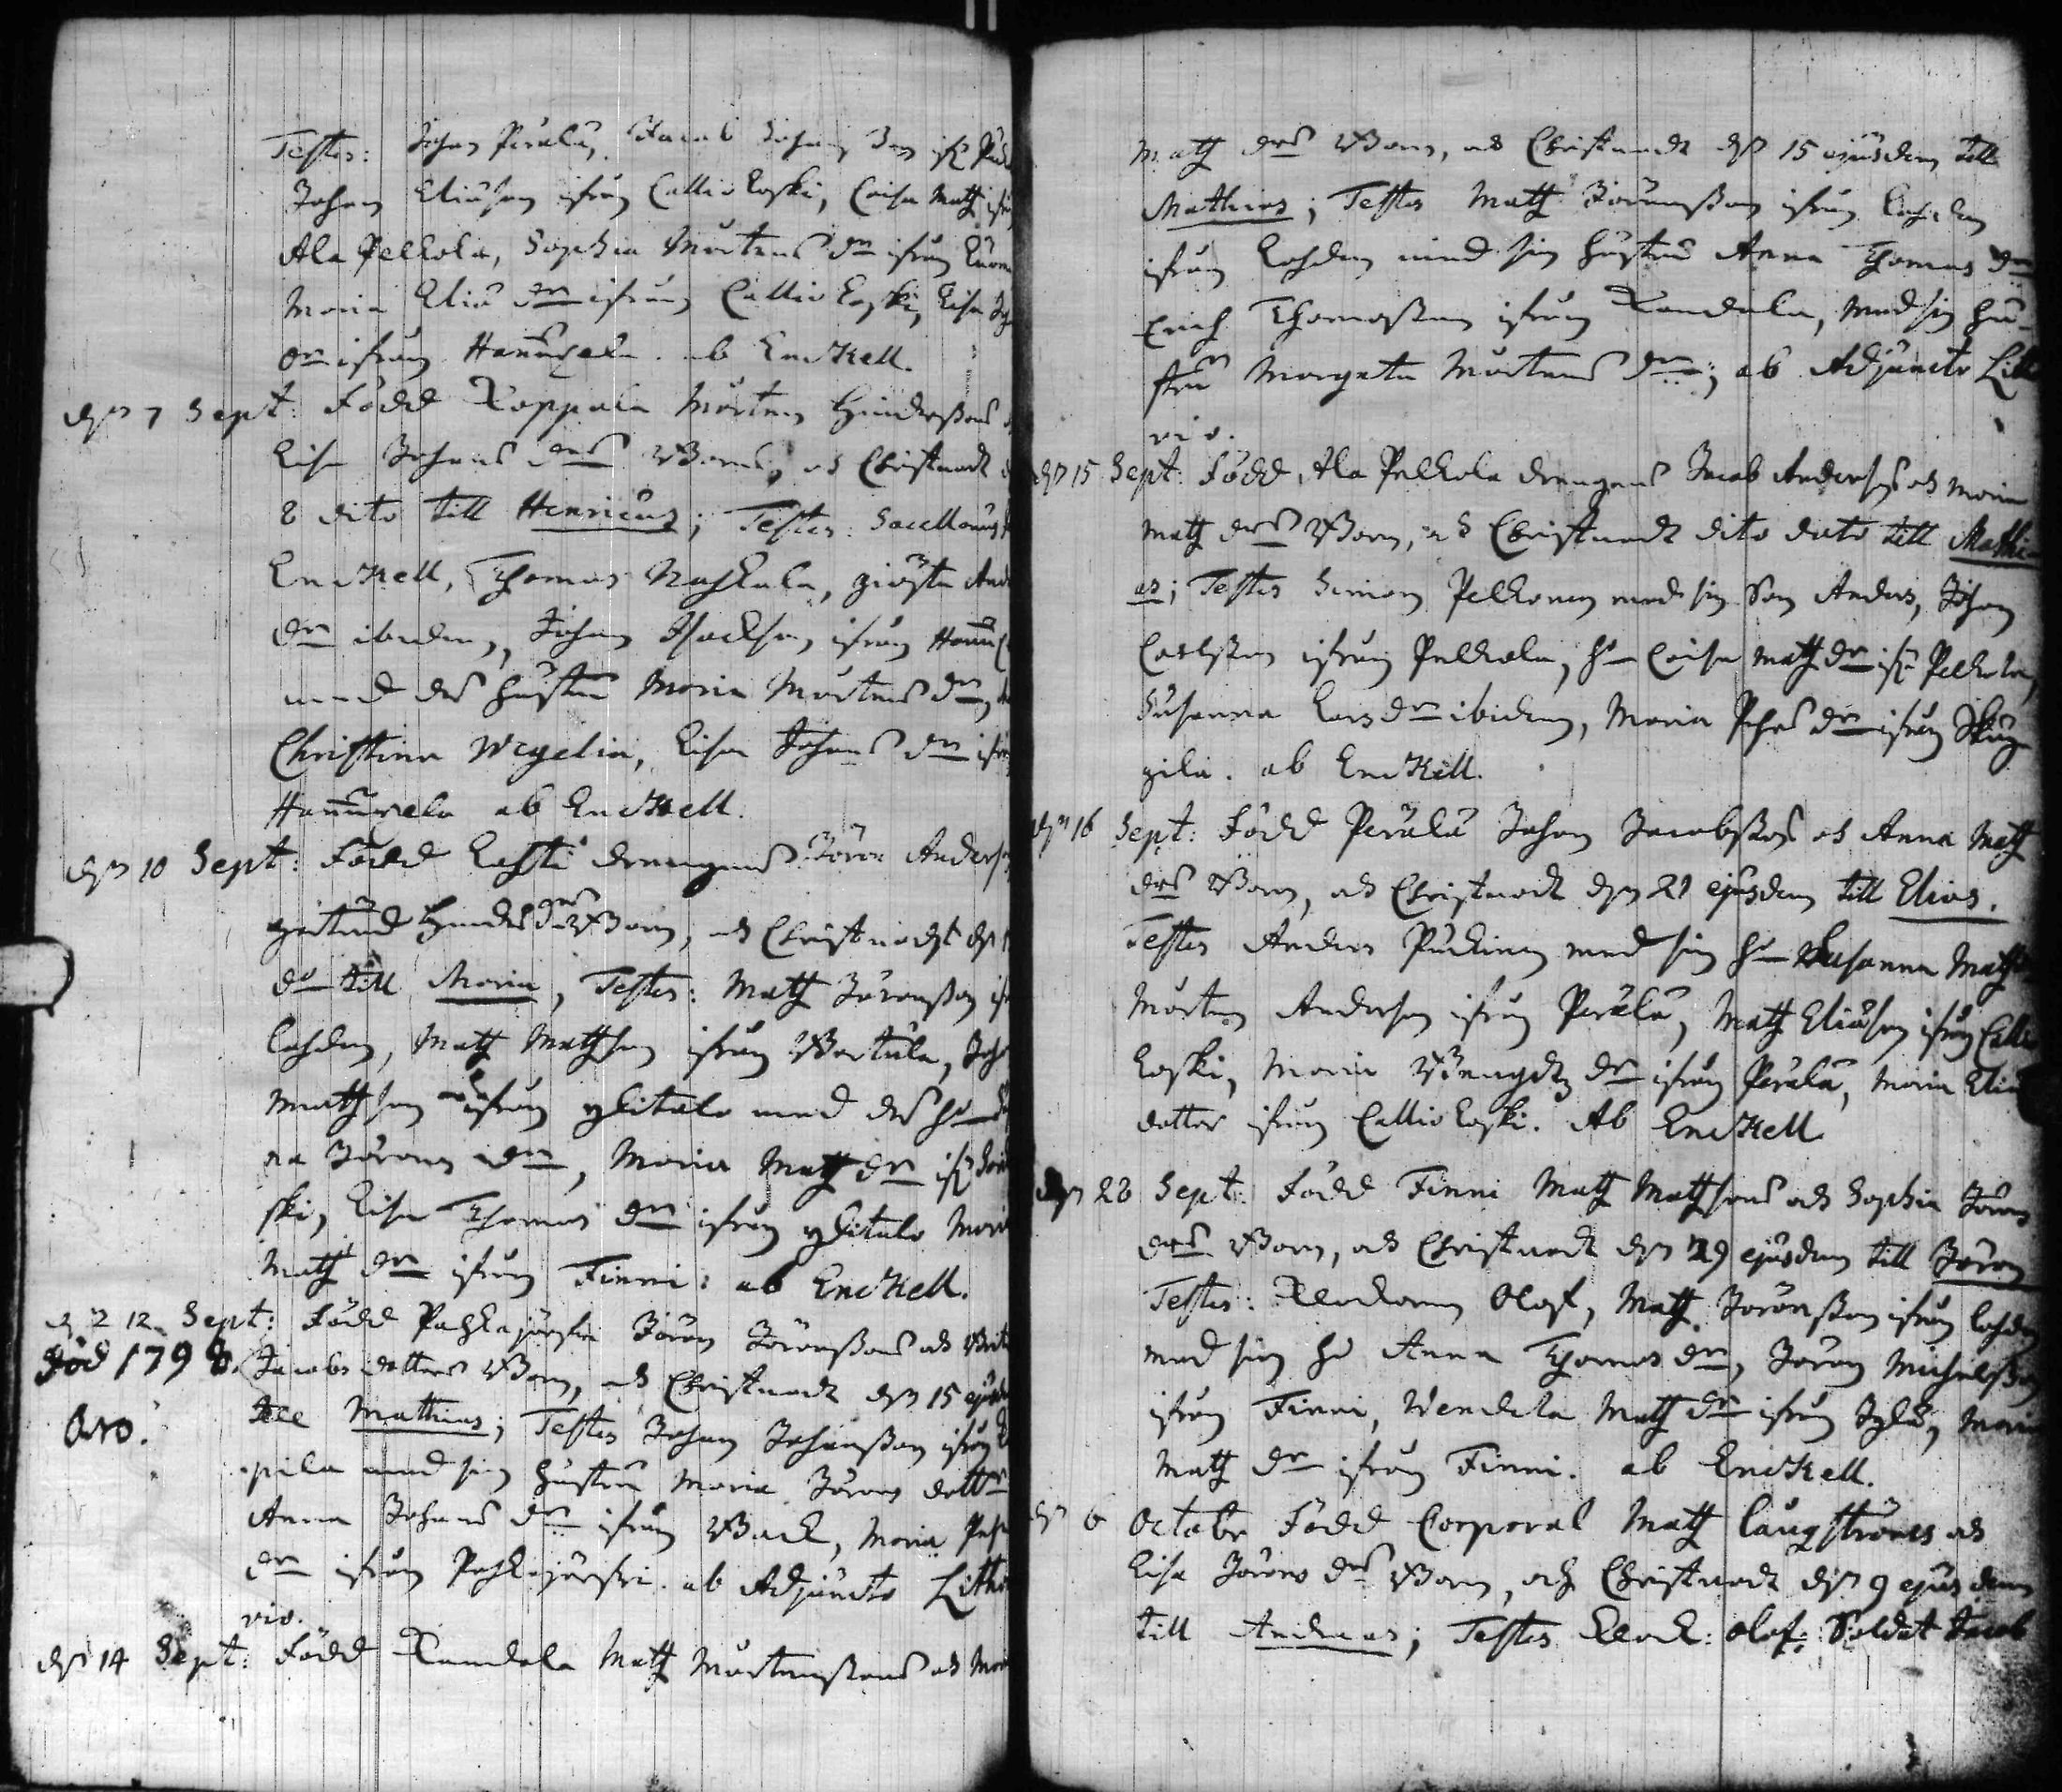 Testes: Johan Perälä, Jacob Johans Son ifr.
Johan Eliäson ifrån Calliokoski, Caisa Math
Ala Pelkola, Sophia Mårtens dr ifrån
Maria Eliä dr ifrån Calliokoski, Lisa
dr ifrån Hannuxela. ab Enckell.
den 7 Sept: Född Koppala Mårten Hinderssons
Lisa Johans drs Barn, och Christnadt
8 dito till Henricus; Testes: Sacellanus
Enckell, Thomas Nahkala, Giösta
dr ibidem, Johan Isackson ifrån
med des hustru Maria Mårtens dr,
Christina Wegelia, Lisa Johans dr ifrån
Hannuxela ab Enckell.
den 10 Sept: Född drengens Jöran Anders
Gertrud Hindrs drs Barn, och Christnadt den
do till Maria, Testes: Math Jöransson
Lahden, Math Mathson ifrån Wartula,
Mathson ifrån Ylitalo med des hu
na Jörans dr, Maria Math dr ifr
ski, Lisa Thomas dr ifrån Ylitalo
Math dr ifrån Finni: ab Enckell.
d 12 Sept: Född Pahkajärfvi Jöran Jöranssons och
Föd 1798. Jacobs dotters Barn, och Christnadt den 15
till Mathias; Testes Johan Johansson ifrån
pila med sin hustru Maria Jörans dotter
Anna Johans dr ifrån Back, Maria
dr ifrån Pahkajärfvi. ab Adjuncto Litho
vio.
den 14 Sept: Född Kandola Math Mårtenssons och
Math drs Barn, och Christnadt den 15 ejusdem till
Mathias; Testes Math Jöransson ifrån Lahden
ifrån Lahden med sin hustru Anna Thomas dr
Erich Thomasson ifrån Kandola, med sin hu-
stru Margeta Mårtens dr; ab Adjuncto Litho
vio.
den 15 Sept: Född Ala Pelkola drengens Jacob Anderssons och Maria
Math drs Barn, och Christnadt dito dato till Mathi
as; Testes Simon Pelkonen med sin Son Anders, Johan
Carlsson ifrån Pelkola, hu Caisa Math dr ifr. Pelkola,
Susanna Lars dr ibidem, Maria dr ifrån
pila. ab Enckell.
den 16 Sept: Född Perälä Johan Jacobssons och Anna Math
drs Barn, och Christnadt den 21 ejusdem till Elias.
Testes Anders Pukinen med sin hu Susanna Maths
Mårten Anderson ifrån Perälä, Math Eliäson ifrån Callio
koski, Maria Bengdtz dr ifrån Perälä, Maria Eliä
dotter ifrån Calliokoski. Ab Enckell
den 28 Sept: Född Finni Math Mathsons och Sophia Jörans
drs Barn, och Christnadt den 29 ejusdem till Jöran
Testes: Klockaren Olof, Math Jöransson ifrån Lahden
med sin hu Anna Thomas dr, Jöran Michelsson
ifrån Finni, Wendela Math dr ifrån, Maria
Math dr ifrån Finni. ab Enckell.
den 6 Octobr Född Corporal Math Langströms och
Lisa Jörans drs Barn, och Christnadt den 9 ejusdem
till Andreas; Testes Klock: Olof: Soldat Jacob